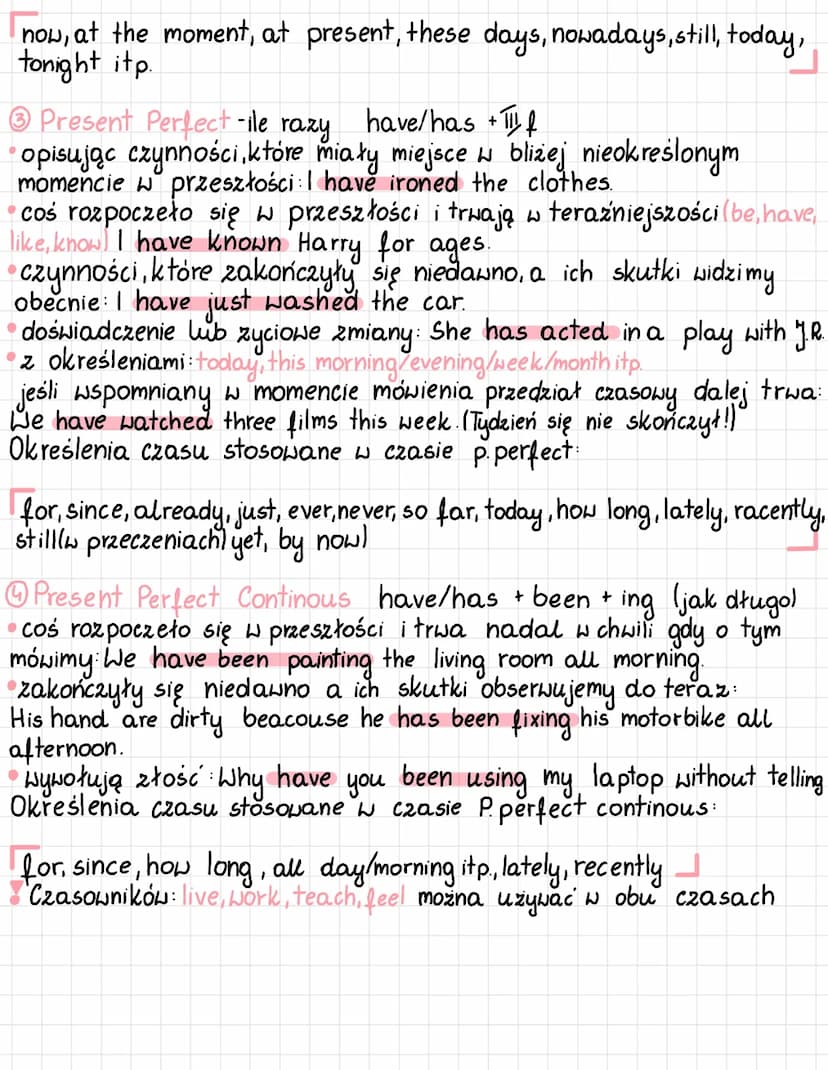 now, at the moment, at present, these days, nowadays, still, today,
tonight itp.
③ Present Perfect - ile razy have/has + III f
• opisując czynności, które miały miejsce w bliżej nieokreślonym
momencie w przeszłości: I have ironed the clothes.
• coś rozpoczeło się w przeszłości i trwają w teraźniejszości (be, have,
like, know) I have known Harry for ages.
• czynności, które zakończyły się niedawno, a ich skutki widzimy
obecnie: I have just washed the car.
• doświadczenie lub zyciowe zmiany: She has acted in a play with J.R.
• z określeniami: today, this morning/evening/week/month itp.
jeśli wspomniany w momencie mówienia przedział czasowy dalej trwa:
We have watched three films this week. (Tydzień się nie skończył!)
Określenia czasu stosowane w czasie p. perfect:
for, since, already, just, ever, never, so far, today, how long, lately, racently,
still (w przeczeniach) yet, by now)
④ Present Perfect Continous have/has + been + ing (jak długo)
• coś rozpoczeło się w przeszłości i trwa nadal w chwili gdy o tym
mówimy: We have been painting the living room all morning.
• zakończyły się niedawno a ich skutki obserwujemy do teraz:
His hand are dirty beacouse he has been fixing his motorbike all
afternoon.
• wywołują złość: Why have you been using my laptop without telling
Określenia czasu stosowane w czasie P. perfect continous:
for, since, how long, all day/morning itp., lately, recently
! Czasowników: live, work, teach, feel można używać w obu czasach